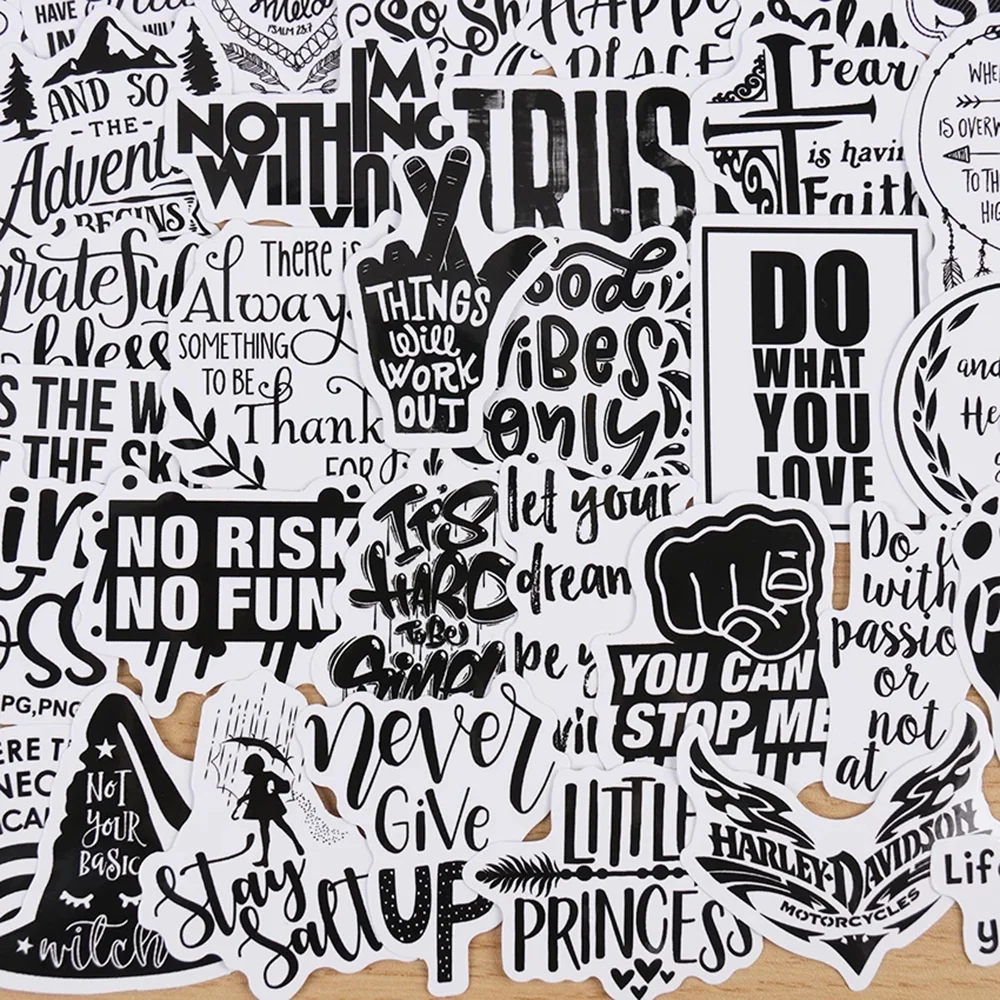 HAVE
IN
PSALM 28:7
So Sh
HAPPY
PLACE
AND SO
- THE -
Adventu
BEGINS
I'M
NOTHING
WITHO
YO
TRUS
Fear
is havin
Faith
WHE
IS OVERW
TO TH
HIG
grateful
bless
S THE W
THE SK
THERE is
Always
SOMETHING
TO BE
Thank
FOR
THINGS
Will
WORK
OUT
ood
ViBES
only
DO
WHAT
YOU
LOVE
and
He
g
NO RISK
NO FUN
IT'S
HARD
To Be
Simpl
let your
dream
be y
Do i
with
passio
or
not
at
OSS
PG,PNG
YOU CAN
STOP ME
ERE T
NEC
ICAL
NOT
YOUR
BASIC
witch
Stay
Salt
never
GIVE
UP
LITTLE
PRINCESS
HARLEY-DAVIDSON
MOTORCYCLES
Life
y